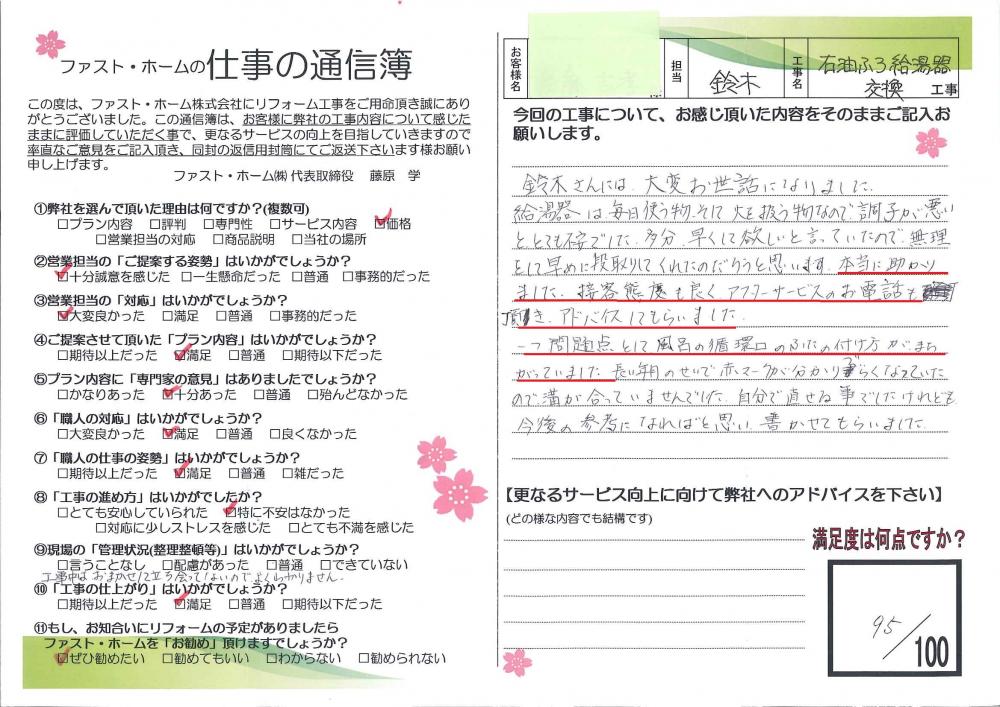 ファスト・ホームの仕事の通信簿
この度は、ファスト・ホーム株式会社にリフォーム工事をご用命頂き誠にあり
がとうございました。この通信簿は、お客様に弊社の工事内容について感じた
ままに評価していただく事で、更なるサービスの向上を目指していきますので
率直なご意見をご記入頂き、同封の返信用封筒にてご返送下さいます様お願い
申し上げます。
ファスト・ホーム㈱ 代表取締役 藤原 学
①弊社を選んで頂いた理由は何ですか?(複数可)
□プラン内容 □評判 □専門性 □サービス内容 □価格
□営業担当の対応 □商品説明 □当社の場所
②営業担当の「ご提案する姿勢」はいかがでしょうか?
□十分誠意を感じた □一生懸命だった □普通 □事務的だった
③営業担当の「対応」はいかがでしょうか?
□大変良かった □満足 □普通 □事務的だった
④ご提案させて頂いた「プラン内容」はいかがでしょうか?
□期待以上だった □満足 □普通 □期待以下だった
⑤プラン内容に「専門家の意見」はありましたでしょうか?
□かなりあった □十分あった □普通 □殆んどなかった
⑥「職人の対応」はいかがでしょうか?
□大変良かった □満足 □普通 □良くなかった
⑦「職人の仕事の姿勢」はいかがでしょうか?
□期待以上だった □満足 □普通 □雑だった
⑧「工事の進め方」はいかがでしたか?
□とても安心していられた □特に不安はなかった
□対応に少しストレスを感じた □とても不満を感じた
⑨現場の「管理状況(整理整頓等)」はいかがでしょうか?
□言うことなし □配慮があった □普通 □できていない
工事中はおまかせして立ち会っていないのでよくわかりません.
⑩「工事の仕上がり」はいかがでしょうか?
□期待以上だった □満足 □普通 □期待以下だった
⑪もし、お知合いにリフォームの予定がありましたら
ファスト・ホームを「お勧め」頂けますでしょうか?
□ぜひ勧めたい □勧めてもいい □わからない □勧められない
お客様名 様 担当 鈴木 工事名 石油ふろ給湯器
交換 工事
今回の工事について、お感じ頂いた内容をそのままご記入お
願いします。
鈴木さんには、大変お世話になりました.
給湯器は毎日使う物、そして火を扱う物なので調子が悪い
ととても不安でした.多分、早くして欲しいと言っていたので、無理
をして早めに段取りしてくれたのだろうと思います.本当に助かり
ました.接客態度も良くアフターサービスのお電話も
頂き、アドバイスしてもらいました.
一つ問題点として風呂の循環口のふたの付け方がまち
がっていました.長い年月のせいで赤マークが分かりづらくなっていた
ので溝が合っていませんでした.自分で直せる事でしたけれども
今後の参考になればと思い、書かせてもらいました.
【更なるサービス向上に向けて弊社へのアドバイスを下さい】
(どの様な内容でも結構です)
満足度は何点ですか?
95/100